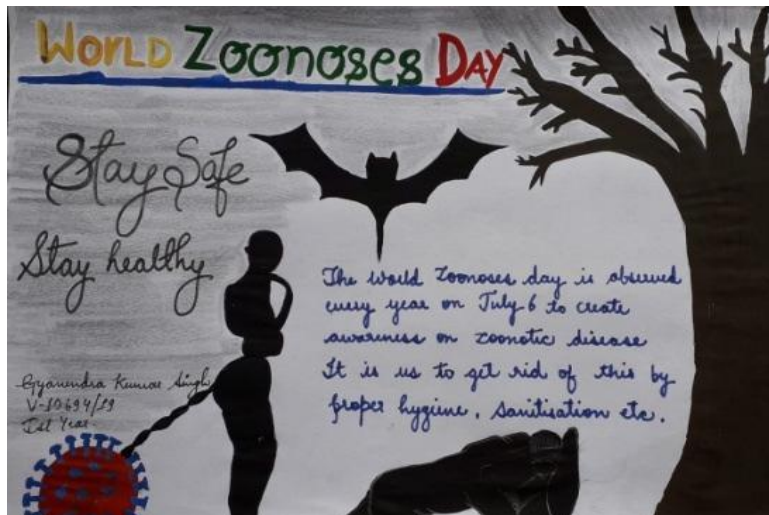 World Zoonoses Day
Stay Safe
Stay healthy
The world zoonoses day is observed
every year on July 6 to create
awareness on zoonotic disease
It is us to get rid of this by
proper hygiene, sanitisation etc.
Gyanendra Kumar Singh
V-10694/19
Ist Year